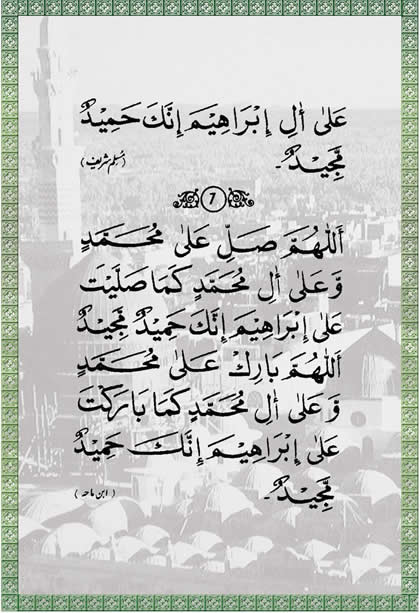 عَلٰى اٰلِ اِبْرَاهِيْمَ اِنَّكَ حَمِيْدٌ
مَّجِيْدٌ۔ (مسلم شریف)
7
اَللّٰهُمَّ صَلِّ عَلٰى مُحَمَّدٍ
وَّ عَلٰى اٰلِ مُحَمَّدٍ كَمَا صَلَّيْتَ
عَلٰى اِبْرَاهِيْمَ اِنَّكَ حَمِيْدٌ مَّجِيْدٌ
اَللّٰهُمَّ بَارِكْ عَلٰى مُحَمَّدٍ
وَّ عَلٰى اٰلِ مُحَمَّدٍ كَمَا بَارَكْتَ
عَلٰى اِبْرَاهِيْمَ اِنَّكَ حَمِيْدٌ
مَّجِيْدٌ۔ (ابن ماجہ)